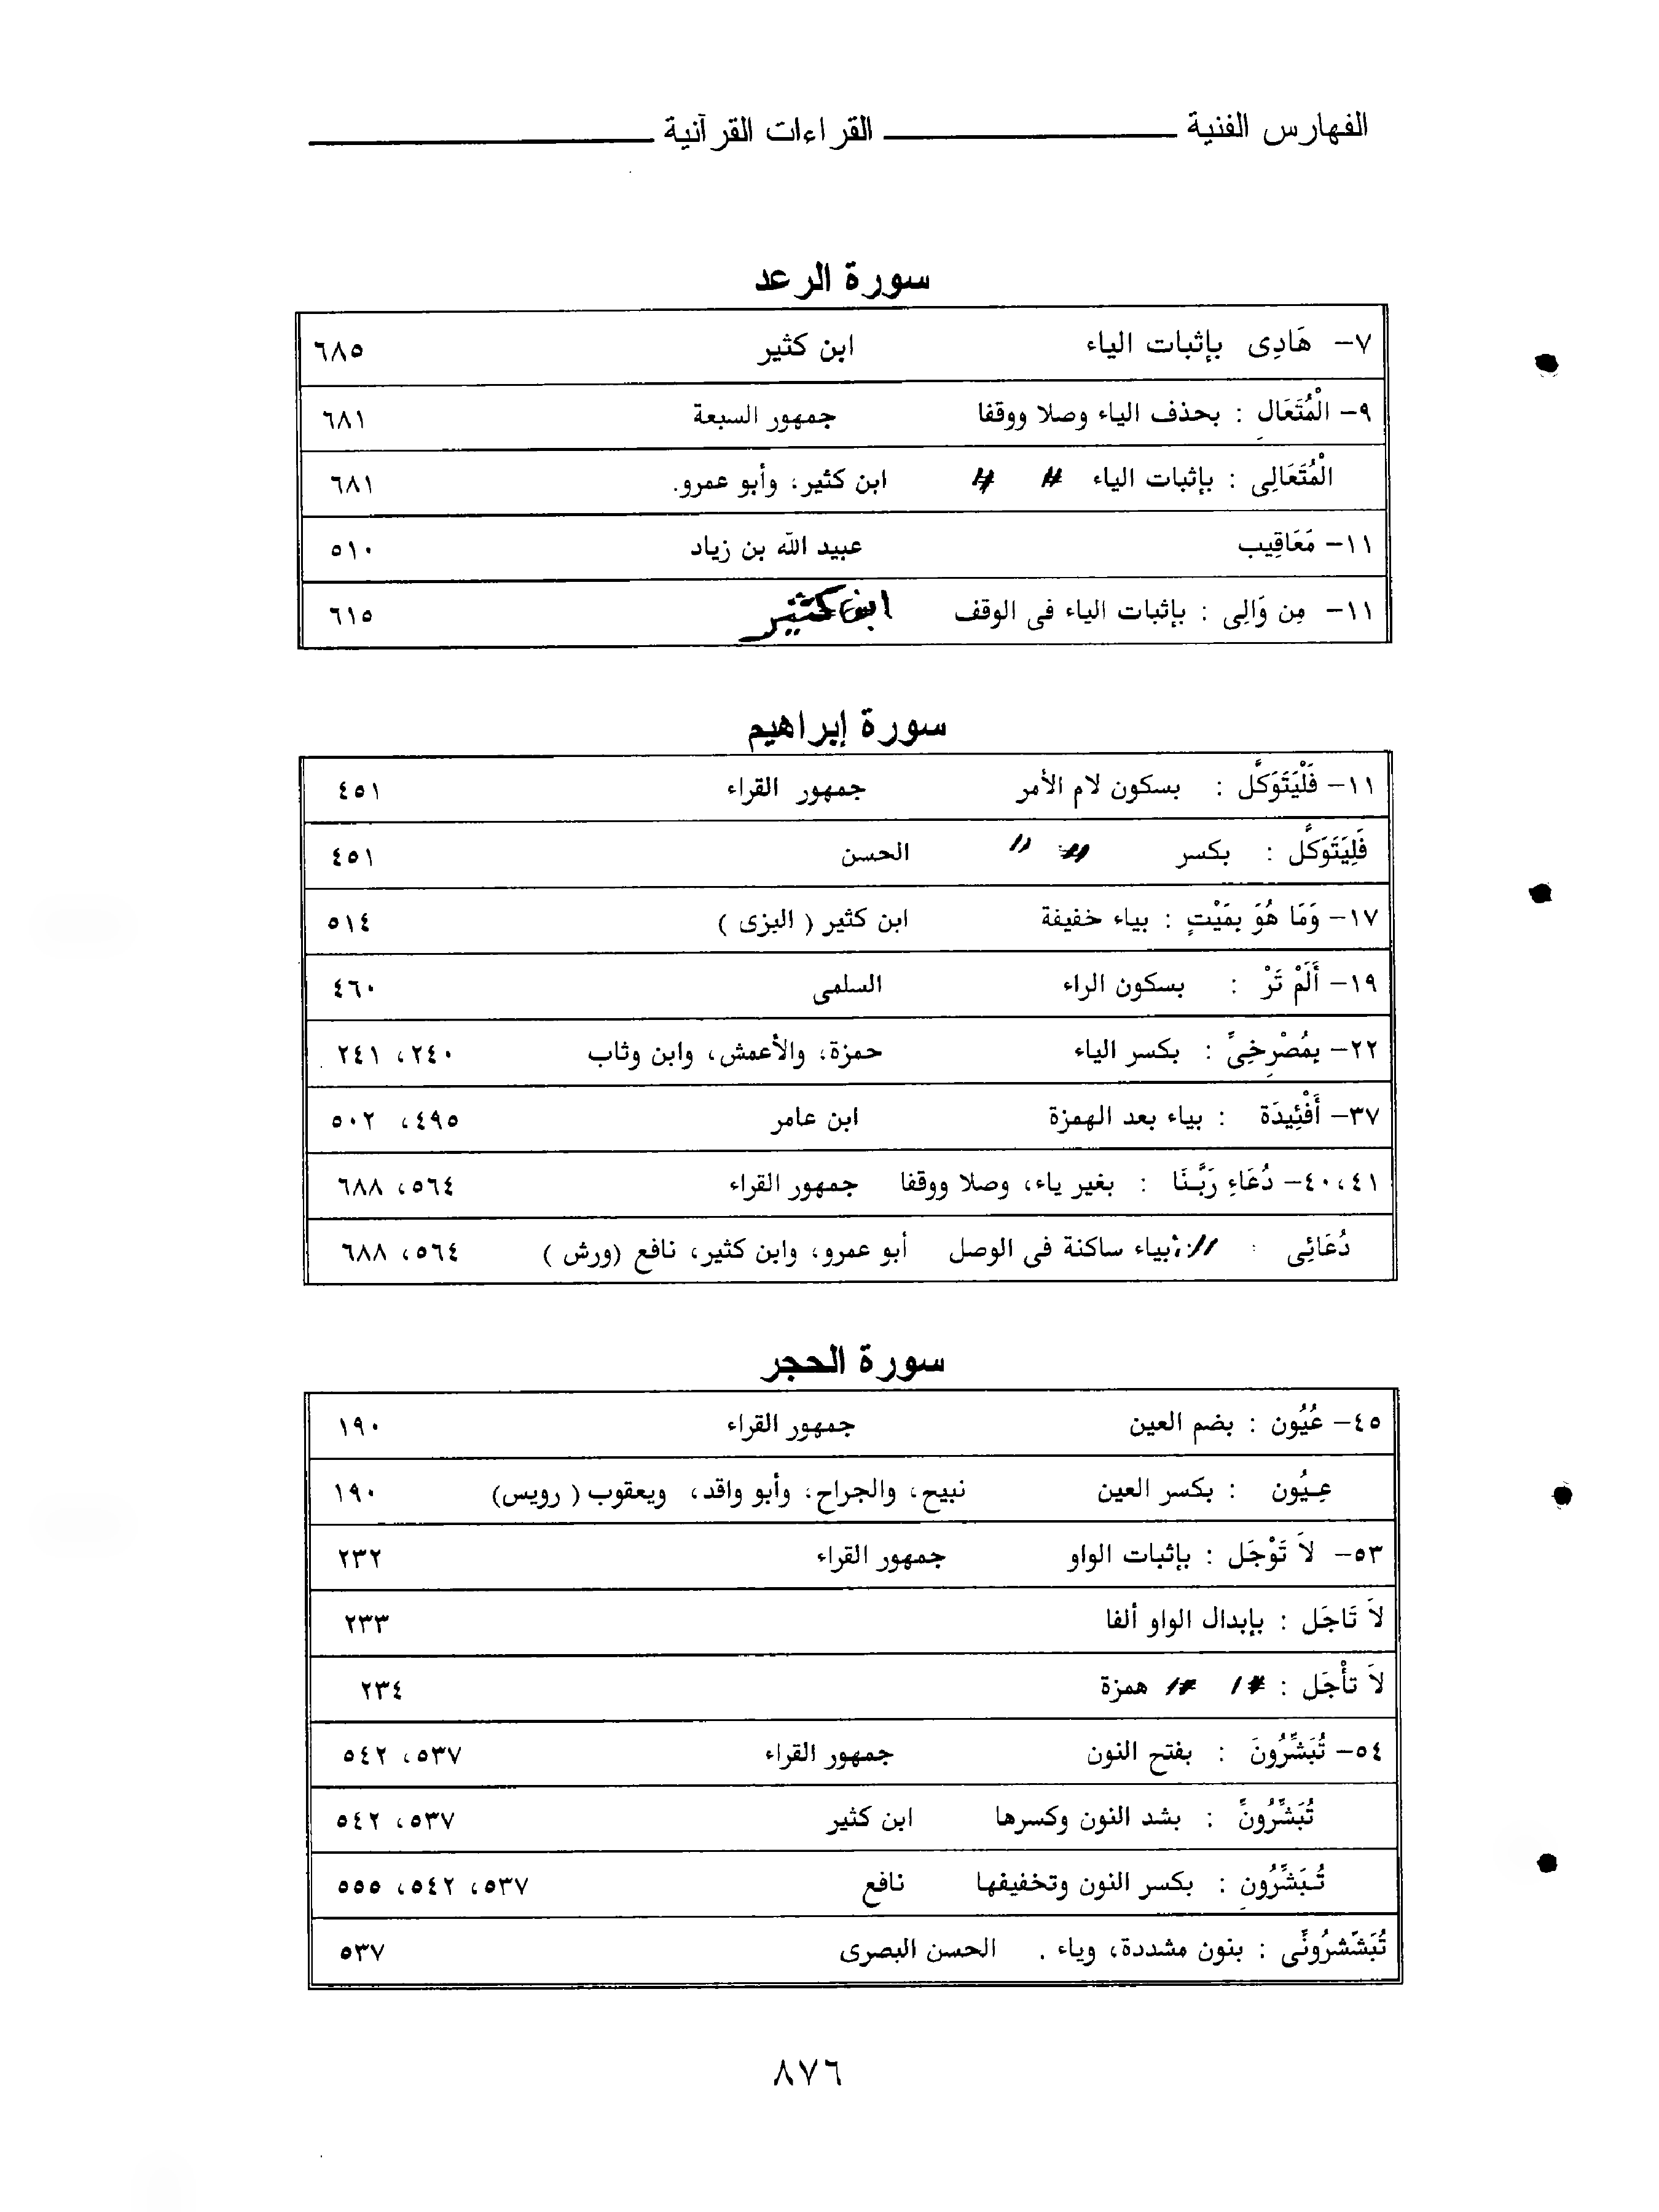 الفهارس الفنية ــــــــ القراءات القرآنية ــــــــ
سورة الرعد
٧- هَادِى بإثبات الياء ابن كثير ٦٨٥
٩- الْمُتَعَالِ : بحذف الياء وصلا ووقفا جمهور السبعة ٦٨١
الْمُتَعَالِى : بإثبات الياء // // ابن كثير، وأبو عمرو. ٦٨١
١١- مَعَاقِيب عبيد الله بن زياد ٥١٠
١١- مِن وَالِى : بإثبات الياء فى الوقف ابن كثير ٦١٥
سورة إبراهيم
١١- فَلْيَتَوَكَّل : بسكون لام الأمر جمهور القراء ٤٥١
فَلِيَتَوَكَّل : بكسر // // الحسن ٤٥١
١٧- وَمَا هُوَ بِمَيْتٍ : بياء خفيفة ابن كثير ( البزى ) ٥١٤
١٩- أَلَمْ تَرْ : بسكون الراء السلمى ٤٦٠
٢٢- بِمُصْرِخِىِّ : بكسر الياء حمزة، والأعمش، وابن وثاب ٢٤٠، ٢٤١
٣٧- أَفْئِيدَة : بياء بعد الهمزة ابن عامر ٤٩٥، ٥٠٢
٤٠،٤١- دُعَاءِ رَبَّنَا : بغير ياء، وصلا ووقفا جمهور القراء ٥٦٤، ٦٨٨
دُعَائِى : // بياء ساكنة فى الوصل أبو عمرو، وابن كثير، نافع (ورش ) ٥٦٤، ٦٨٨
سورة الحجر
٤٥- عُيُون : بضم العين جمهور القراء ١٩٠
عِيُون : بكسر العين نبيح، والجراح، وأبو واقد، ويعقوب ( رويس) ١٩٠
٥٣- لاَ تَوْجَل : بإثبات الواو جمهور القراء ٢٣٢
لاَ تَاجَل : بإبدال الواو ألفا ٢٣٣
لاَ تأْجَل : // // همزة ٢٣٤
٥٤- تُبَشِّرُونَ : بفتح النون جمهور القراء ٥٣٧، ٥٤٢
تُبَشِّرُونِّ : بشد النون وكسرها ابن كثير ٥٣٧، ٥٤٢
تُبَشِّرُونِ : بكسر النون وتخفيفها نافع ٥٣٧، ٥٤٢، ٥٥٥
تُبَشّشرُونِّى : بنون مشددة، وياء . الحسن البصرى ٥٣٧
٨٧٦